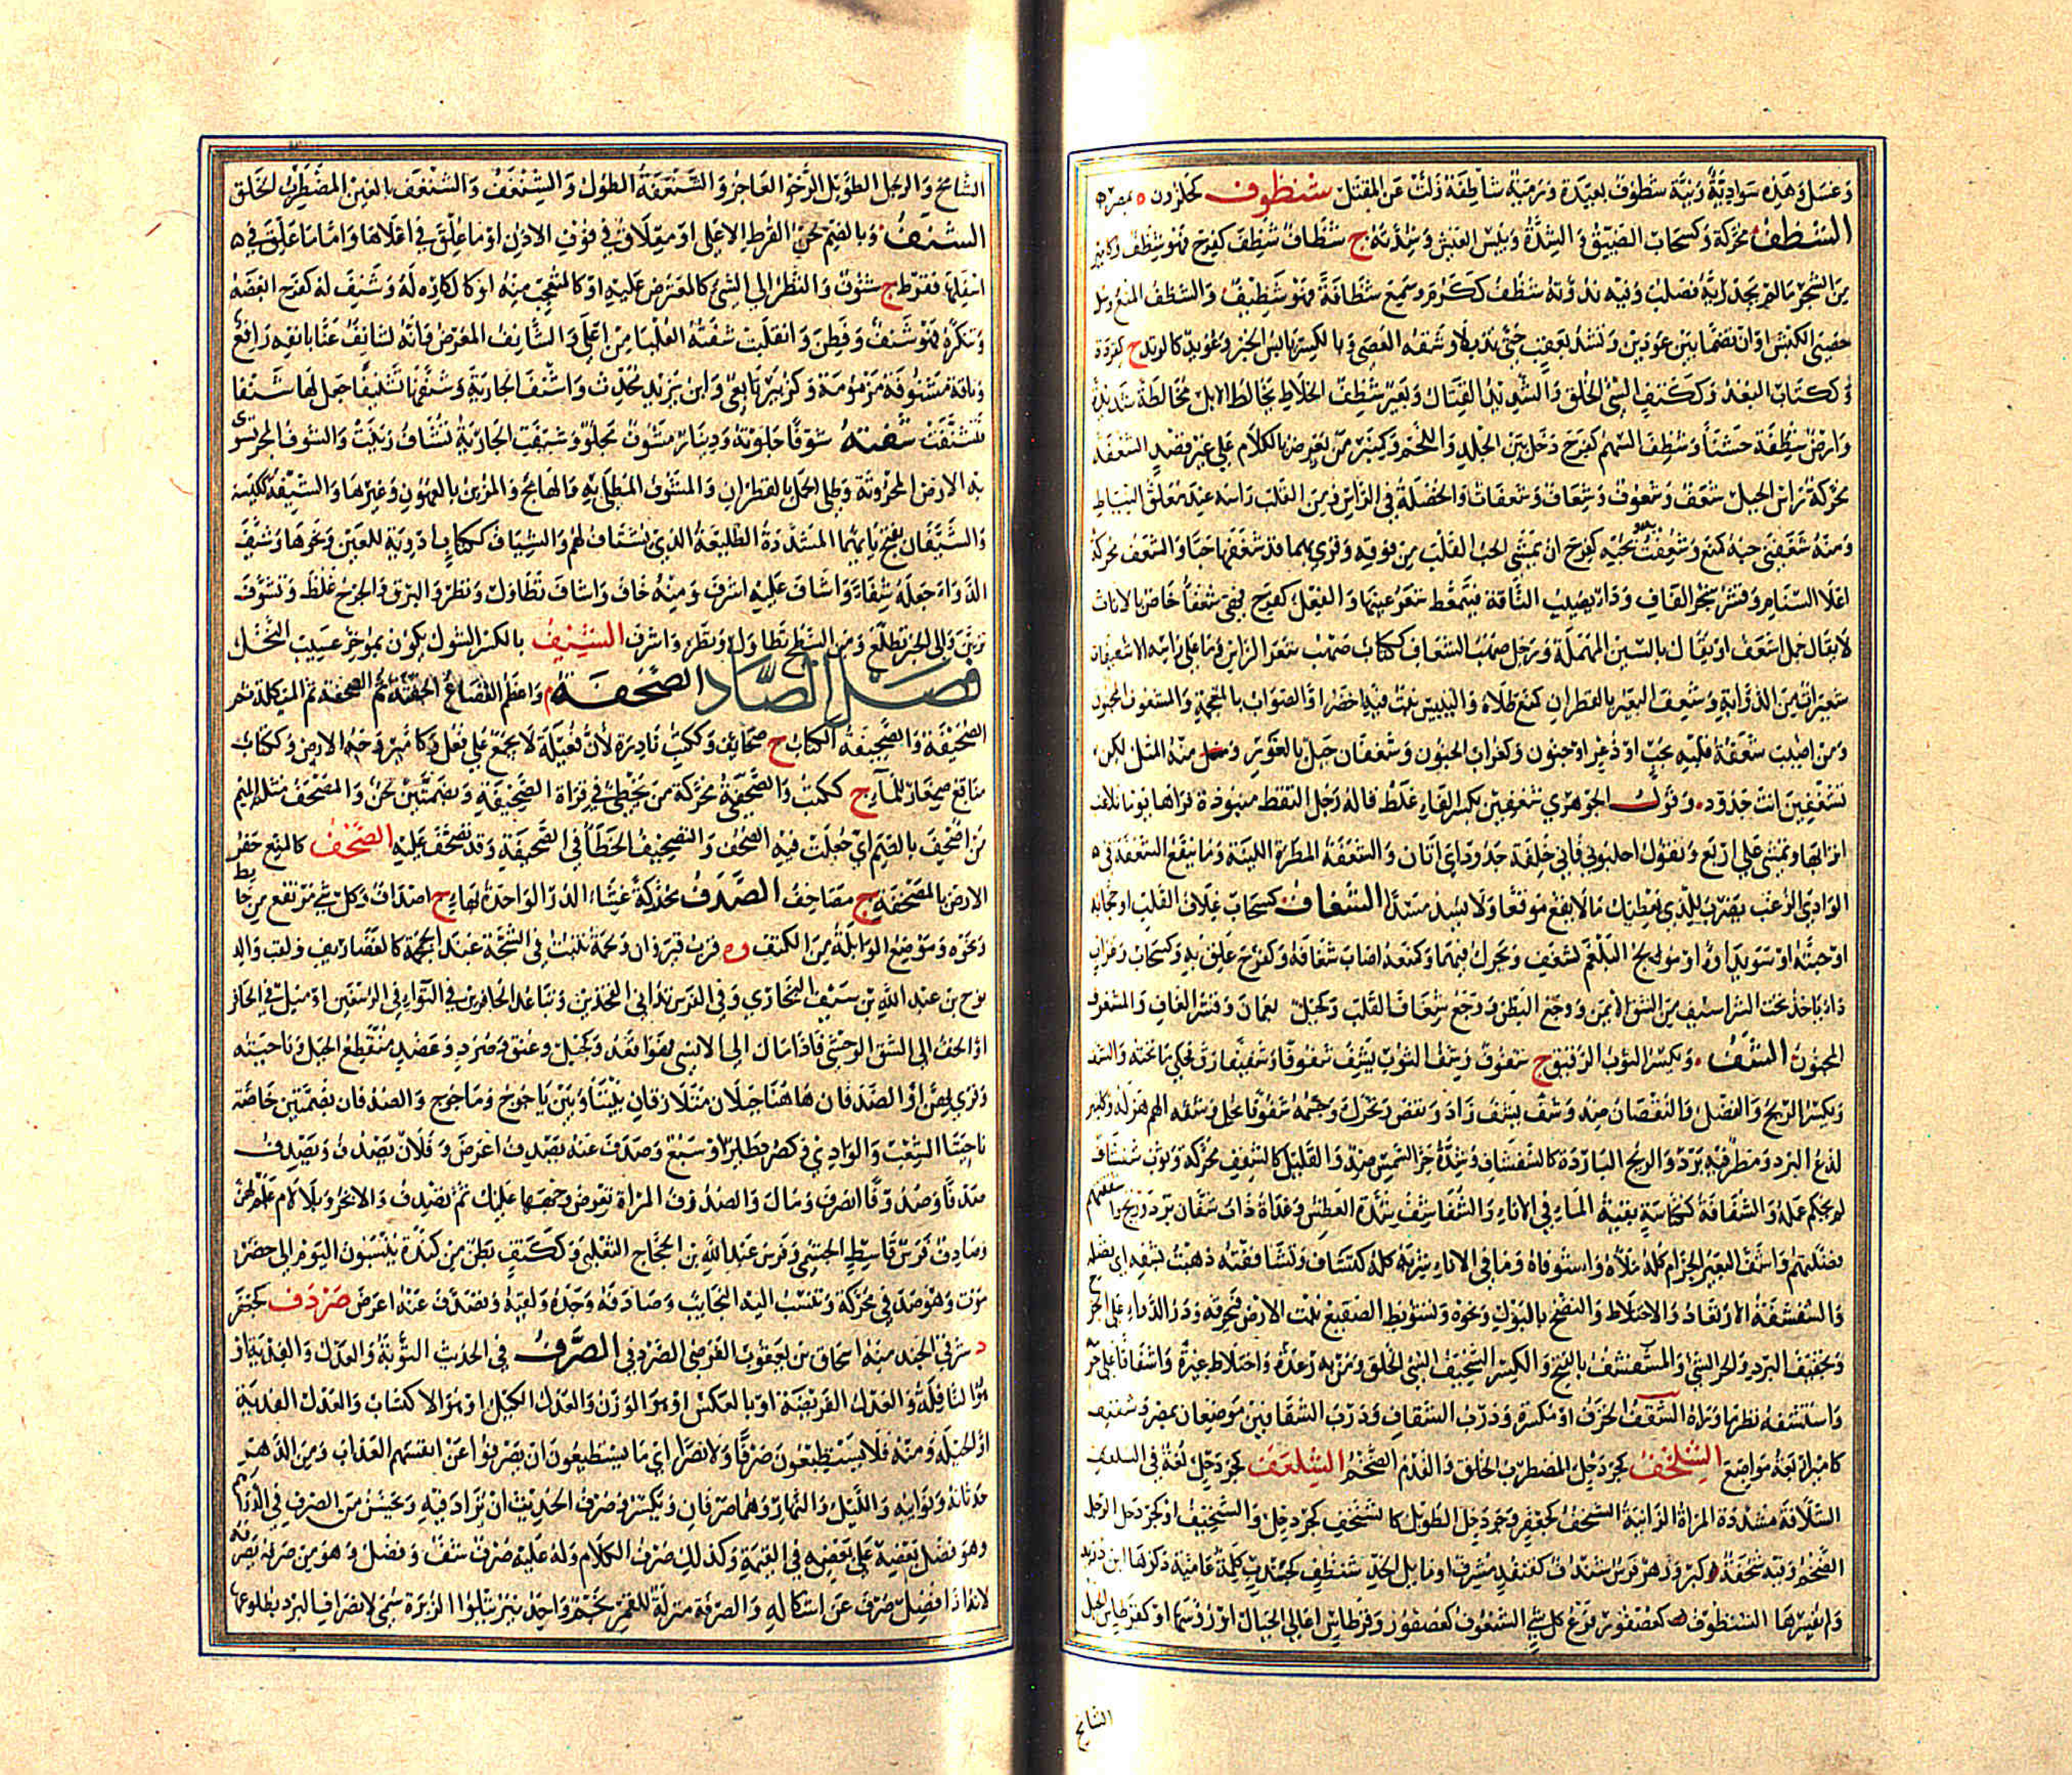 وغسل وهذه سوادية ونية شطوف بعيدة ورمية شاطفة زلت عن المقتل شنظوف كحلزون ه بمصر
الشظف محركة وكسحاب الضيق والشدة ويبس العيش وشدته ج شظاف شظف كفرح فهو شظف وكامير
من الشجر مالم يجد ريه فصلب وفيه ندوته شظف ككرم وسمع شظافة فهو شظيف والشظف المنع وسل
خصيتي الكبش او ان تضمهما بين عودين وتشد بعقب حتى تذبلا وشقة العصى وبالكسر يابس الخبز وعويد كالوتد ج كقردة
وككتاب البعد وككتف السئ الخلق والشديد القتال وبعير شظف الخلاط يخالط الابل مخالطة شديدة
وارض شظفة خشناء وشظف السهم كفرح دخل بين الجلد واللحم وكمنبر من يعرض بالكلام على غير قصد الشعفة
محركة راس الجبل شعف وشعوف وشعاف وشعفات والخصلة في الراس ومن القلب راسه عند معلق النياط
ومنه شعفني حبه كمنع وشعفت بحبه كفرح ان يغشى الحب القلب من فوقه وقرئ بهما قد شغفها حبا والشعف محركة
اعلا السنام وقشر شجر الغاف وداء يصيب الناقة فيتمعط شعر عينيها والفعل كفرح فهي شعفاء خاص بالاناث
لا يقال جمل اشعف او يقال بالسين المهملة ورجل صهب الشعاف ككتاب صهب شعر الراس وما على راسه الا شعيفات
شعيرات من الذؤابة وشعف البعير بالقطران كمنع طلاه واليبيس نبت فيه اخضر او الصواب بالمعجمة والمشعوف المجنون
ومن اصيب شعفة قلبه بحب او ذعر او جنون وكغراب الجنون وشعفان جبل بالغور ومنه المثل لكن
بشعفين انت جدود وقول الجوهري شعفين بكسر الفاء غلط قاله رجل التقط منبوذة فراها يوما تلاعب
اترابها وتمشي على اربع وتقول احلبوني فاني خلفة جدود اي اتان والشعفة المطرة اللينة وما ينفع الشعفة في
الوادي الرغب يضرب للذي يعطيك مالا يقع موقعا ولا يسد مسدا الشغاف كسحاب غلاف القلب او حجابه
او حبته او سويداؤه او مولج البلغم كشغف ويحرك فيهما وكمنعه اصاب شغافه وكفرح علق به وكسحاب وغراب
داء ياخذ تحت الشراسيف من الشق الايمن ووجع البطن ووجع شغاف القلب وكجبل بعمان وقشر الغاف والمشغوف
المجنون الشف ويكسر الثوب الرقيق ج شفوف وشف الثوب يشف شفوفا وشفيفا رق فحكى ما تحته والشف
ويكسر الربح والفضل والنقصان ضد وشف يشف زاد ونقص وتحرك وجسمه شفوفا نحل وشفه الهم هزله وكامير
لذع البرد ومطر فيه برد والريح الباردة كالشفشاف وشدة حر الشمس ضد والقليل كالشفف محركة وثوب شفشاف
لم يحكم عمله والشفافة ككناسة بقية الماء في الاناء والشفاشف شدة العطش وغداة ذات شفان برد وريح واشفهم
فضلهم واشف البعير الحزام كله ملأه واستوفاه وما في الاناء شربه كله كتشاف وتشافيته ذهبت بشفه اي بفضله
والشفشفة الارتعاد والاختلاط والنضح بالبول ونحوه وتشويط الصقيع نبت الارض فيحرقه وذر الدواء على الجرح
وتجفيف البرد والحر الشئ والمشفشف بالفتح والكسر السخيف السئ الخلق ومن به رعدة واختلاط غيرة واشفاقا على حرمه
واستشفه نظر ما وراءه الشقف الخزف او مكسره ودرب الشقاف ودرب الشقافين موضعان بمصر وشقيف
كامير اربعة مواضع الشلخف كجردحل المضطرب الخلق والفدم الضخم الشلعف كجردحل لغة في السلعف
الشلافة مشددة المراة الزانية الشنحف كجعفر وجردحل الطويل كالشنخف كجردحل والشنخيف او كجردحل الرجل
الضخم وفيه شنخفة كبر وزهو فرس شندف كقنفذ مشرف او مايل الخد شنطف كجندب كلمة عامية ذكرها ابن دريد
ولم يفسرها الشنظوف كعصفور فرع كل شئ الشنعوف كعصفور وقرطاس اعالي الجبال او رؤسها او كقرطاس الجبل
الشامخ
الشامخ والرجل الطويل الرخو العاجز والشنعفة الطول والشنغف والشنغف بالغين المضطرب الخلق
الشنف وبالضم لحن القرط الاعلى او معلاق في قوف الاذن او ما علق في اعلاها واما ما علق في
اسفلها فقرط ج شنوف والنظر الى الشئ كالمعترض عليه او كالمتعجب منه او كالكاره له وشنف له كفرح ابغضه
وتنكره فهو شنف وفطن وانقلبت شفته العليا من اعلى والشانف المعرض وانه لشانف عنا بانفه رافع
وناقة مشنوفة مزمومة وكزبير تابعي وابن يزيد محدث واشنف الجارية وشنفها تشنيفا جعل لها شنفا
فتشنفت شفته شوفا جلوته ودينار مشوف مجلو وشيفت الجارية تشاف زينت والشوف المجر تسوى
به الارض المحروثة وطلى الجمل بالقطران والمشوف المطلى به والهايج والمزين بالعهون وغيرها والشيفة ككيسة
والشيفان بفتح ياءيهما المشددة الطليعة الذي يشتاف لهم والشياف ككتاب ادوية للعين ونحوها وشيف
الدواء جعله شيافا واشاف عليه اشرف ومنه خاف واشتاف تطاول ونظر والبرق والجرح غلظ وتشوف
تزين والى الخبر تطلع ومن السطح تطاول ونظر واشرف الشنيف بالكسر الشوك يكون بموخر عسيب النخل
فصل الصاد الصحفة م واعظم القصاع الجفنة ثم الصحفة ثم الميكلة ثم
الصحيفة والصحيفة الكتاب ج صحايف وككتب نادرة لان فعيلة لا تجمع على فعل وكامير وجه الارض وككتاب
مناقع صغار للماء ج ككتب والصحفي محركة من يخطئ في قراة الصحيفة وبضمتين لحن والمصحف مثلثة الميم
من اصحف بالضم اي جعلت فيه الصحف والتصحيف الخطأ في الصحيفة وقد تصحف عليه الصخف كالمنع حفر
الارض بالمصخفة ج مصاخف الصدف محركة غشاء الدر الواحدة بهاء ج اصداف وكل شئ مرتفع من حايط
ونحوه وموضع الوابلة من الكتف وه قرب قيروان ولحمة تنبت في الشجة عند الجمجمة كالغضاريف ولقب والد
نوح بن عبد الله بن سيف البخاري وفي الفرس تداني الفخذين وتباعد الحافرين في التواء في الرسغين او ميل في الحافر
او الخف الى الشق الوحشي فاذا مال الى الانسي فهو اقفد وكجبل وعنق وصرد وعضد منقطع الجبل وناحيته
وقرئ بهن او الصدفان هاهنا جبلان متلازقان بيننا وبين ياجوج وماجوج والصدفان بضمتين خاصة
ناحيتا الشعب والوادي وكصرد طاير او سبع وصدف عنه يصدف اعرض وفلان يصدف ويصدف
صدفا وصدوفا انصرف ومال والصدوف المراة تعرض وجهها عليك ثم تصدف والابخر وبلا لام علم لهن
وصادف فرس قاسط الجشمي وفرس عبد الله بن الحجاج الثعلبي وككتف بطن من كندة ينسبون اليوم الى حضر
موت وهو صدفي محركة وتنسب اليه النجايب وصادفه وجده ولقيه وتصدف عنه اعرض صردف كجعفر
د شرقي الجند منه اسحاق بن يعقوب الفرضي الصردفي الصرف في الحديث التوبة والعدل والفدية او
هو النافلة والعدل الفريضة او بالعكس او هو الوزن والعدل الكيل او هو الاكتساب والعدل الفدية
او الحيلة ومنه فلا يستطيعون صرفا ولا نصرا اي ما يستطيعون ان يصرفوا عن انفسهم العذاب ومن الدهر
حدثانه ونوايبه والليل والنهار وهما صرفان ويكسر وصرف الحديث ان يزاد فيه ويحسن من الصرف في الدراهم
وهو فضل بعضه على بعض في القيمة وكذلك صرف الكلام وله عليه صرف شف وفضل وهو من صرفه يصرفه
لانه اذا فضل صرف عن اشكاله والصرفة منزلة للقمر نجم واحد نير يتلوا الزبرة سمي لانصراف البرد بطلوعها